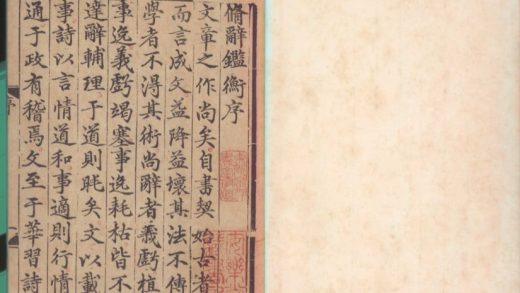 脩辭鑑衡序
文章之作尚矣自書契始古者
而言成文益降益壞其法不傳
學者不得其術尚辭者義虧植
事逸義虧竭塞事逸耗枯皆不
達辭輔理于道則眊矣文以載
事詩以言情道和事適則行情
通于政有稽焉文至于華習詩